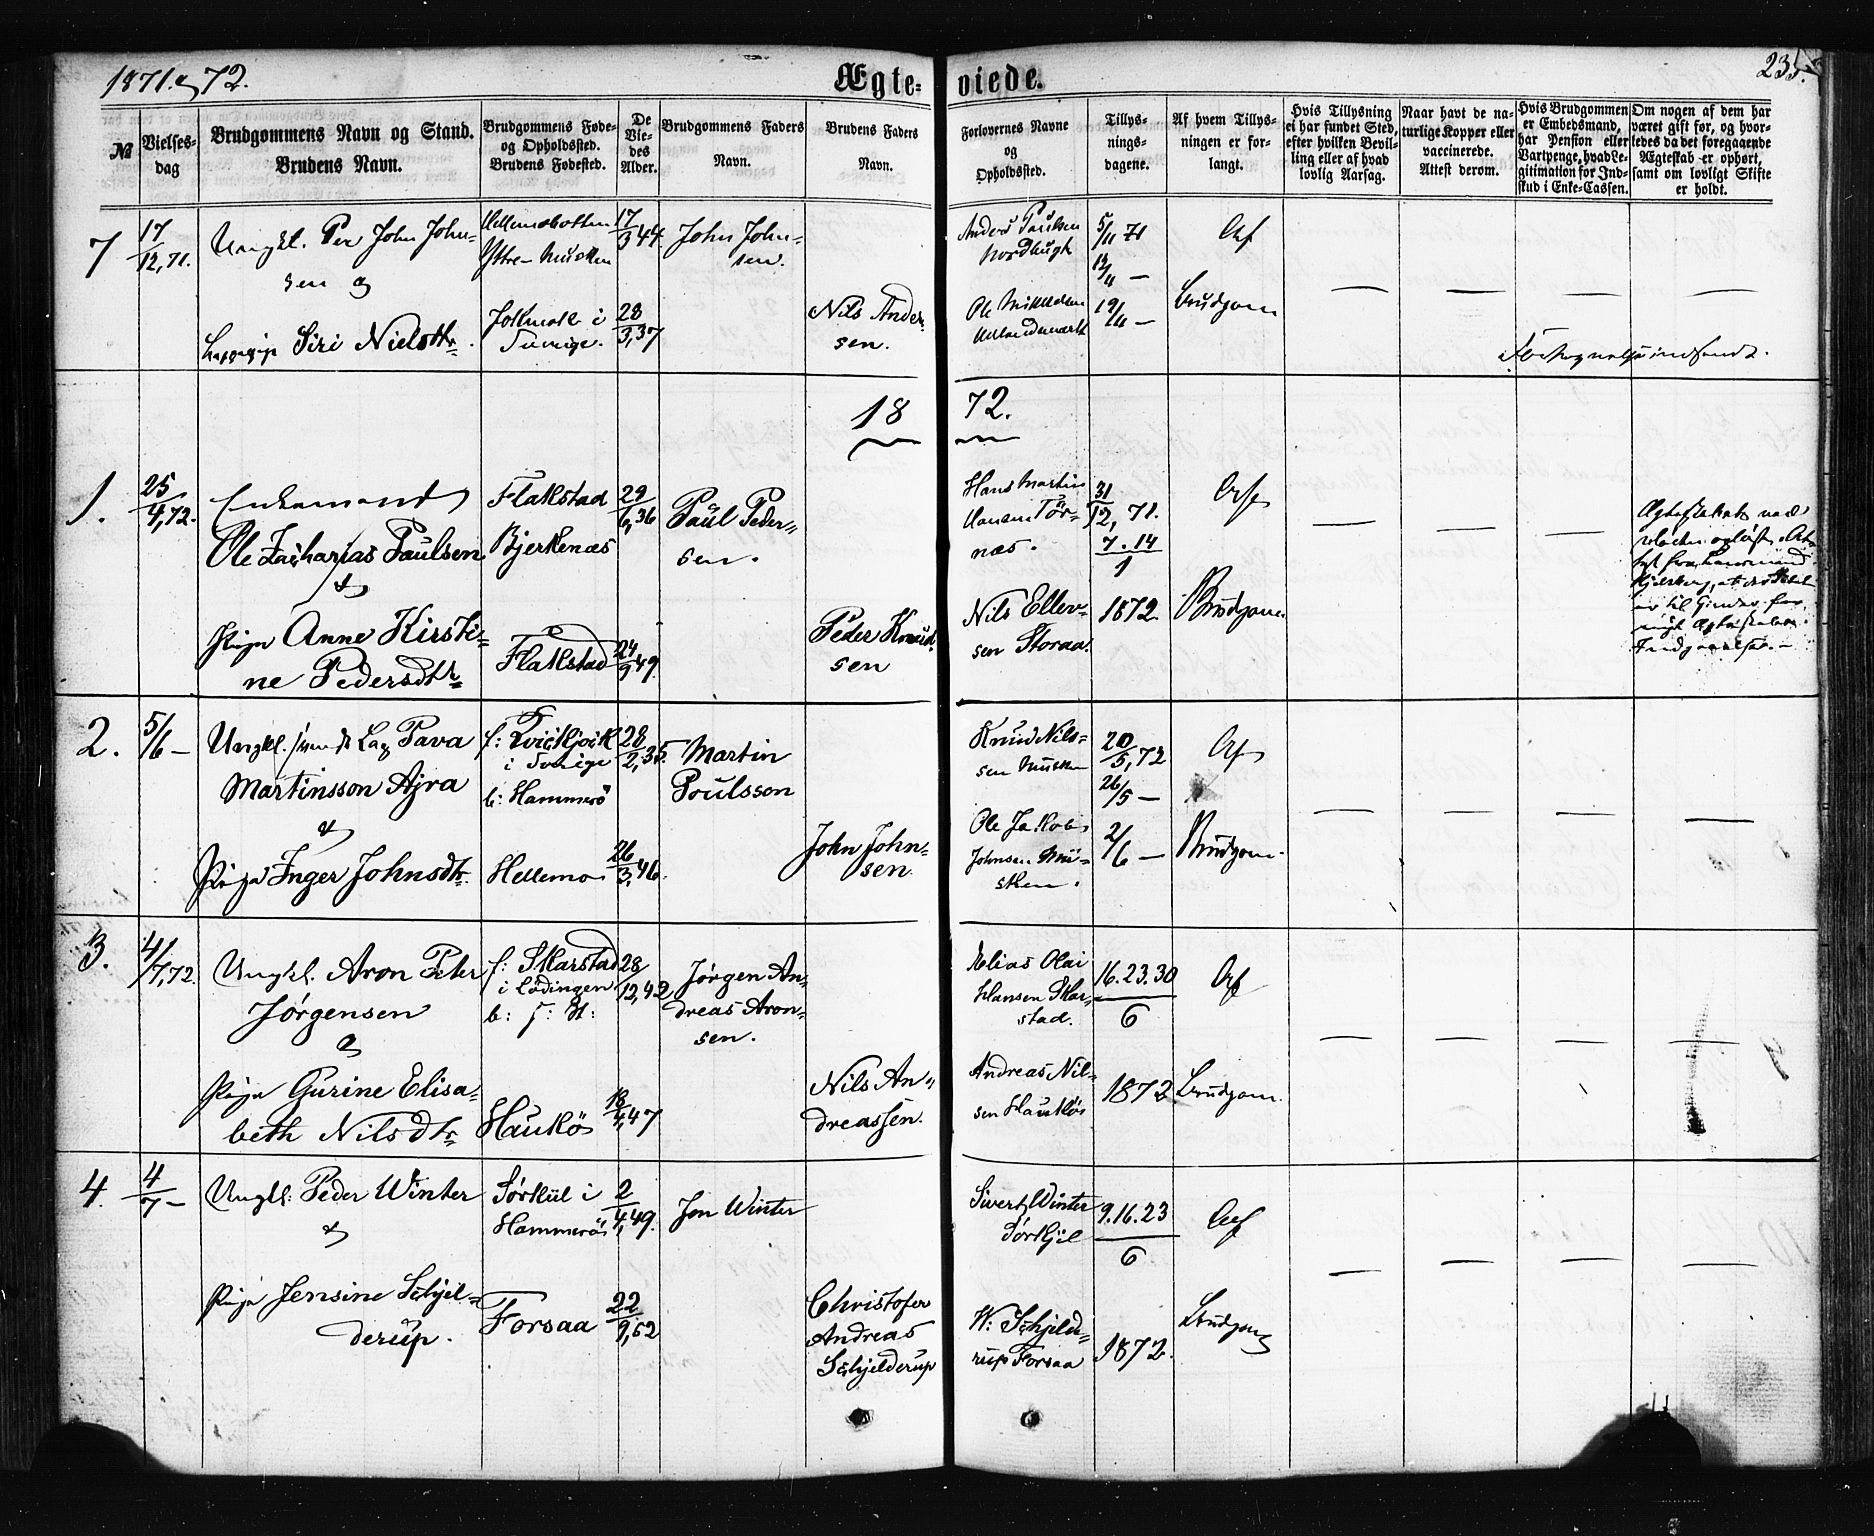 1871 og 72.
Ægte-
viede.
235.
№
Vielses-
dag
Brudgommens Navn og Stand.
Brudens Navn.
Brudgommens Føde-
og Opholdssted.
Brudens Fødested.
De
Vie-
des
Alder.
Brudgommens Faders
Navn.
Brudens Faders
Navn.
Forlovernes Navne
og
Opholdssted.
Tillys-
nings-
dagene.
Af hvem Tillys-
ningen er for-
langt.
Hvis Tillysning
ei har fundet Sted,
efter hvilken Bevil-
ling eller af hvad
lovlig Aarsag.
Naar havt de na-
turlige Kopper eller
vaccinerede.
Attest derom.
Hvis Brudgommen
er Embedsmand,
har Pension eller
Vartpenge, hvad Le-
gitimation for Ind-
skud i Enke-Cassen.
Om nogen af dem har
været gift før, og hvor-
ledes da det foregaaende
Ægteskab er ophørt,
samt om lovligt Skifte
er holdt.
7
17/12, 71.
Ungkl. Per John John-
sen og
Siri Nielsdtr.
Hellemobotten
Ystre-Musken
Jokmok i
Sverige.
17/3 44
28/3, 37
John John-
sen.
Nils Ander-
sen.
Anders Paulsen
Nordbugt
Ole Mikkelsen
5/11 71
12/11 —
19/11 —
Brudgom
18 72.
1.
25/4, 72.
Enkemand
Ole Zacharias Paulsen
&
Pige Anne Kirsti-
ne Pedersdtr
Flakstad
Bjerkenæs
Flakstad
29/6, 36
24/9 49.
Paul Peder-
sen.
Peder Knud-
sen
Hans Martin
Hansen Tør-
næs.
Nils Ellev-
sen Storaa.
31/12, 71.
7. 14/1
1872.
Brudgom
2.
5/6 —
Ungkl. Lap Pava
Martinsson Ajra
&
Pige Inger Johnsdtr.
f: Kvickjock
i Sverige
b: Hammerö
Hellemo
28/2, 35.
26/3, 46.
Martin
Poulsson
John John-
sen.
Knud Nils-
sen Musken
Ole Jakob
Johnsen Mu-
sken.
20/5, 72
26/5 —
2/6 —
Brudgom
3.
4/7, 72
Ungkl. Aron Peter
Jørgensen
&
Pige Gurine Elisa-
beth Nilsdtr
f: Skarstad
i Lødingen
b: s: St:
Haukö
28/12, 42
18/4, 47
Jørgen An-
dreas Aron-
sen.
Nils An-
dreassen.
Elias Olai
Hansen Skar-
stad.
Andreas Nil-
sen Haukö
16. 23. 30/6
1872
Brudgom
4.
4/7 —
Ungkl. Peder Winter
&
Pige Jensine Schjel-
derup.
Sørkil i
Hammerö
Forsaa
2/4, 49.
22/9, 52
Jon Winter
Christofer
Andreas
Schjelderup
Sivert Winter
Sørkjil
W: Schjeld-
rup Forsaa
9. 16. 23/6
1872.
Brudgom